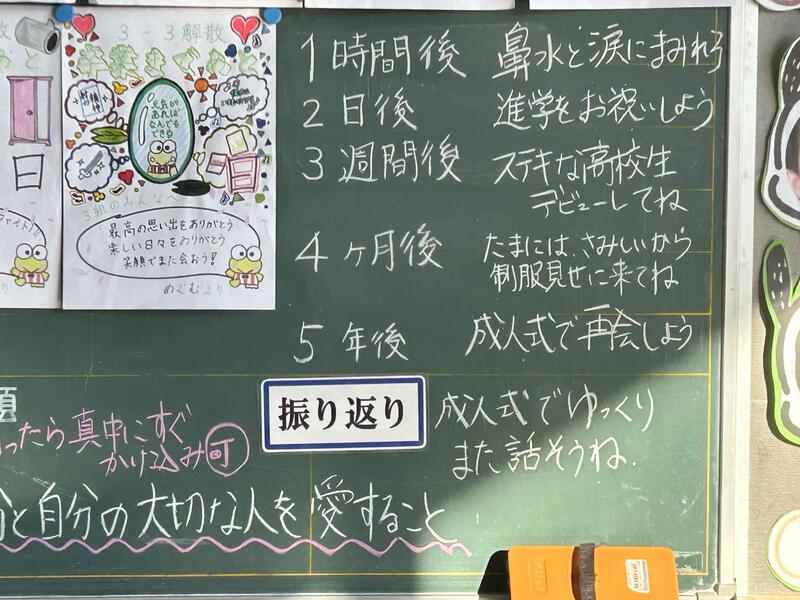 3-3解散
元気が
あれば
なんでも
できる
3組のみんなへ
最高の思い出をありがとう
楽しい日々をありがとう
笑顔でまた会おう!
めぐむより
1時間後 鼻水と涙にまみれろ
2日後 進学をお祝いしよう
3週間後 ステキな高校生
デビューしてね
4ヶ月後 たまには、さみしいから
制服見せに来てね
5年後 成人式で再会しよう
振り返り
成人式でゆっくり
また話そうね.
ったら真中にすぐ
かけ込み可
と自分の大切な人を愛すること
日
日